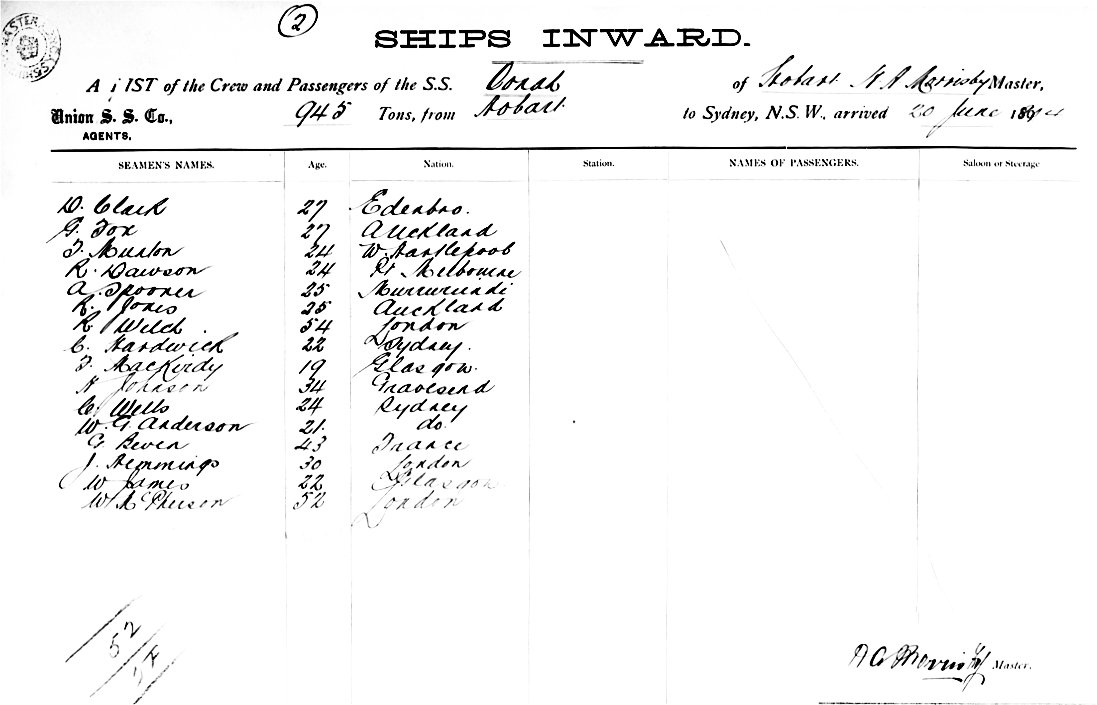 2
SHIPS INWARD.
A LIST of the Crew and Passengers of the S.S. Oonah of Hobart Master,
Union S. S. Co., 945 Tons, from Hobart to Sydney, N.S.W., arrived 20 June 189
AGENTS.
SEAMEN'S NAMES. Age. Nation. Station. NAMES OF PASSENGERS. Saloon or Steerage
D. Clark 27 Edenbro.
G. Fox 27 Auckland
24 W. Hartlepool
R. Dawson 24 Pt Melbourne
A. Spooner 25 Murrurundi
R. Jones 25 Auckland
R. Welch 54 London
C. Hardwick 22 Sydney.
T. MacKirdy 19 Glasgow.
H Johnson 34 Gravesend
C. Wells 24 Sydney
W. G. Anderson 21. do.
G Beven 43 France
J. Hemmings 30 London
W James 22 Glasgow
W McPherson 52 London
52
Master.